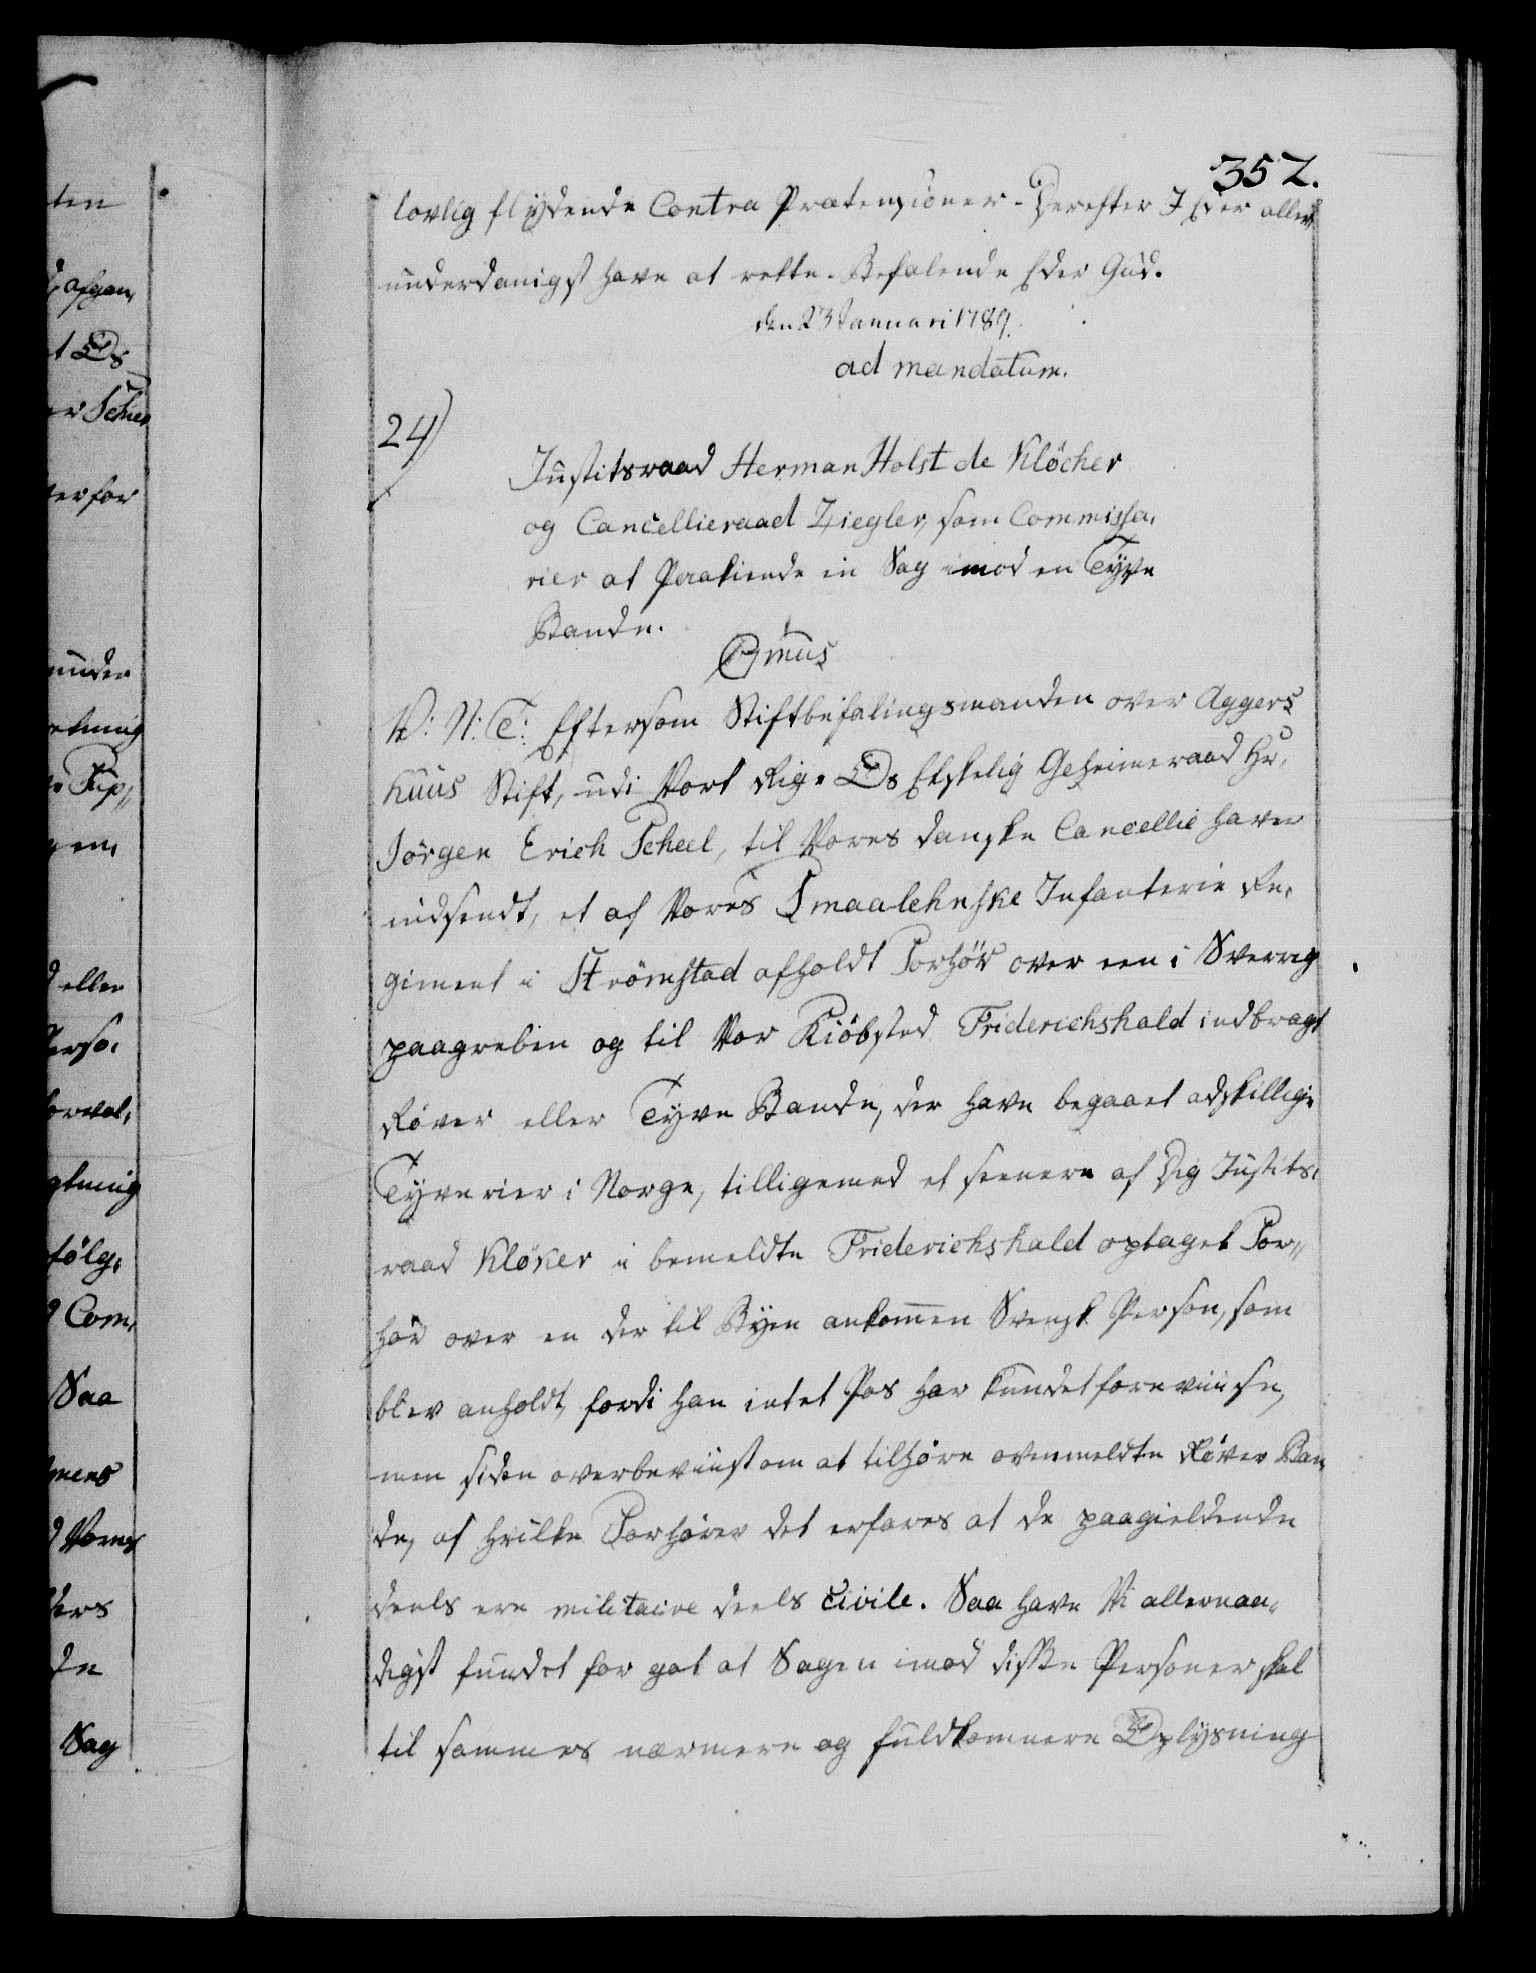 352.
lovlig flydende Contra Prætensioner. Derefter I Eder aller
underdanigst have at rette. Befalende Eder Gud.
den 23 Januari 1789.
ad mandatum.
24)
Justitsraad Herman Holst de Klöcher
og Cancellieraad Ziegler, som Commissa,
rier at paakiende en Sag imod en Tyve
Bande.
V: N: T: Eftersom Stiftbefalingsmanden over Aggers
huus Stift, udi Vort Rige Os Elskelig Geheimeraad Hr.
Jörgen Erich Scheel, til Vores danske Cancellie haver
indsendt, et af Vores Smaalehnske Infanterie Re,
giment i Strömstad afholdt Forhör over een i Sverrig
paagreben og til Vor Kiöbsted Friderichshald indbragt
Röver eller Tyve Bande, der have begaaet adskillige
Tyverier i Norge, tilligemed et seenere af Dig Justits,
raad Klöker i bemeldte Friderichshald optaget For,,
hör over en der til Byen ankommen Svensk Person, som
blev anholdt, fordi han intet Pas har kundet foreviise,
men siden overbeviist om at tilhöre ovenmeldte Röver Ban
de, af hvilke Forhörer det erfares at de paagieldende
deels ere militaire deels civile. Saa have Vi allernaa,
digst fundet for got at Sagen imod disse Personer skal
til sammes nærmere og fuldkomnere Oplysning
ten
afgan,
t Os
er
erfor
under
gen,
d eller
Perso,
fölg,
d Com,
Saa
d Vores
ders
de
Sag